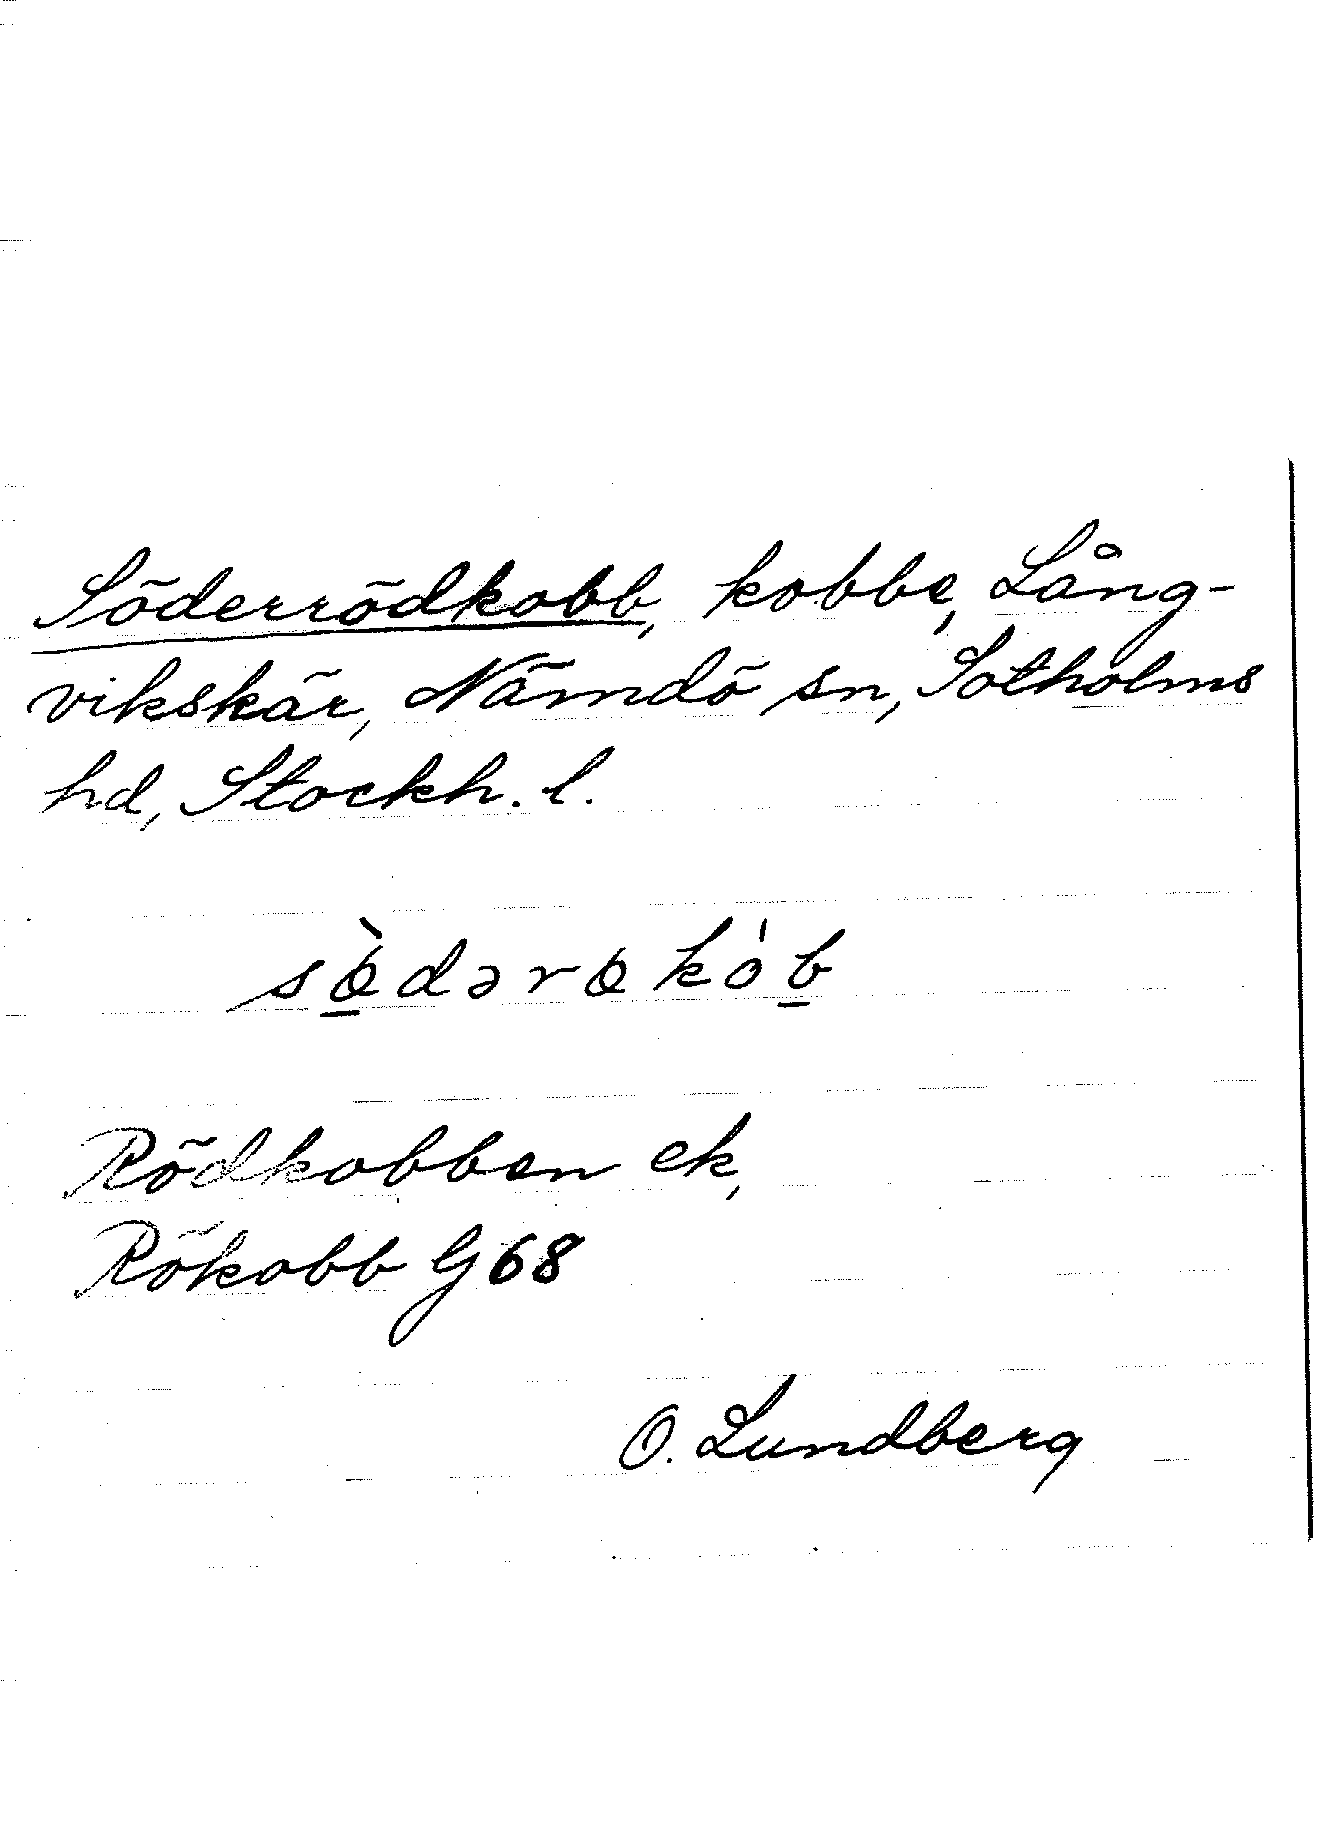 Söderrödkobb, kobbe, Lång-
vikskär, Nämdö sn, Sotholms
hd, Stockh. l.
sø̀dərøkób
Rödkobben ek,
Rökobb G 68
O. Lundberg